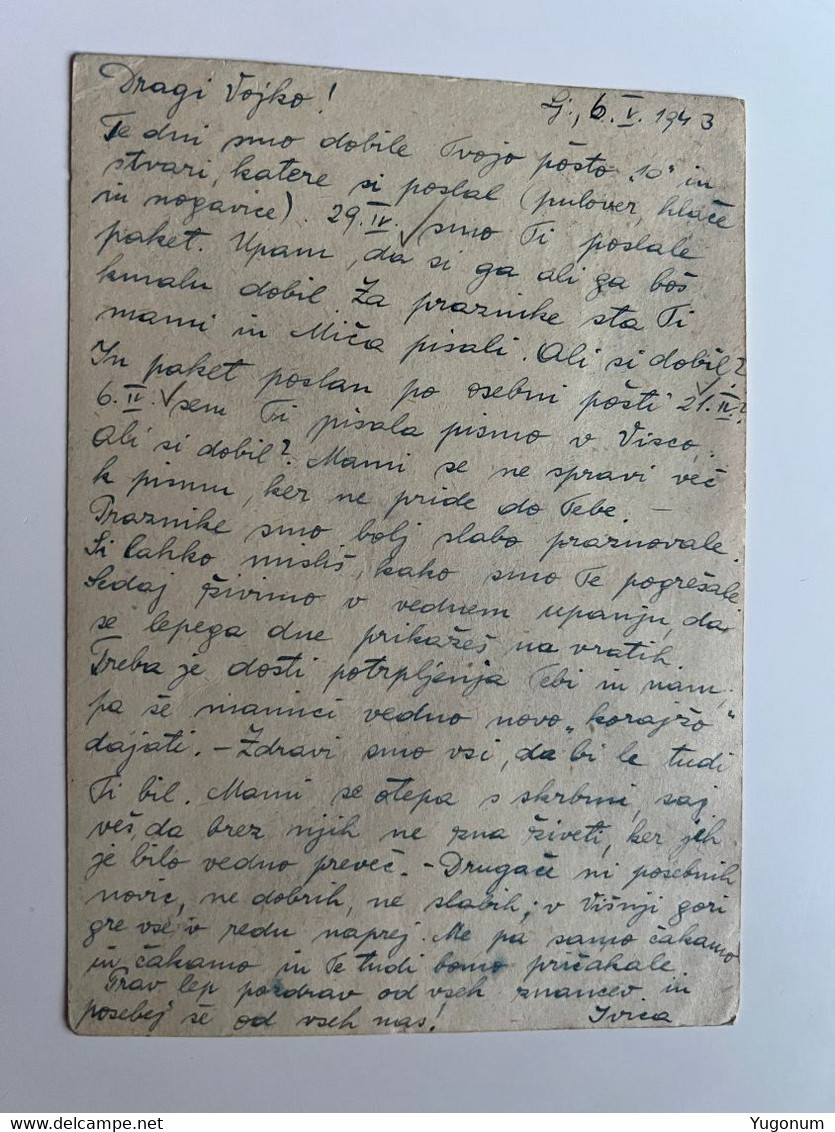 Dragi Vojko! Lj., 6. V. 1943
Te dni smo dobile Tvojo pošto „10" in
stvari, katere si poslal (pulover, hlače
in nogavice). 29. IV. smo Ti poslale
paket. Upam, da si ga ali ga boš
kmalu dobil. Za praznike sta Ti
mami in Miča pisali. Ali si dobil?
In paket poslan po osebni pošti 21. IV.?
6. IV. sem Ti pisala pismo v Visco,
Ali si dobil? Mami se ne spravi več
k pismu, ker ne pride do Tebe. –
Praznike smo bolj slabo praznovale.
Si lahko misliš, kako smo Te pogrešale.
Sedaj živimo v vednem upanju, da
se lepega dne prikažeš na vratih.
Treba je dosti potrpljenja Tebi in nam,
pa še mamici vedno novo „korajžo"
dajati. – Zdravi smo vsi, da bi le tudi
Ti bil. Mami se otepa s skrbmi, saj
veš, da brez njih ne zna živeti, ker jih
je bilo vedno preveč. – Drugače ni posebnih
novic, ne dobrih, ne slabih; v Višnji gori
gre vse v redu naprej. Me pa samo čakamo
in čakamo in Te tudi bomo pričakale.
Prav lep pozdrav od vseh znancev in
posebej še od vseh nas! Ivica
delcampe.net
Yugonum